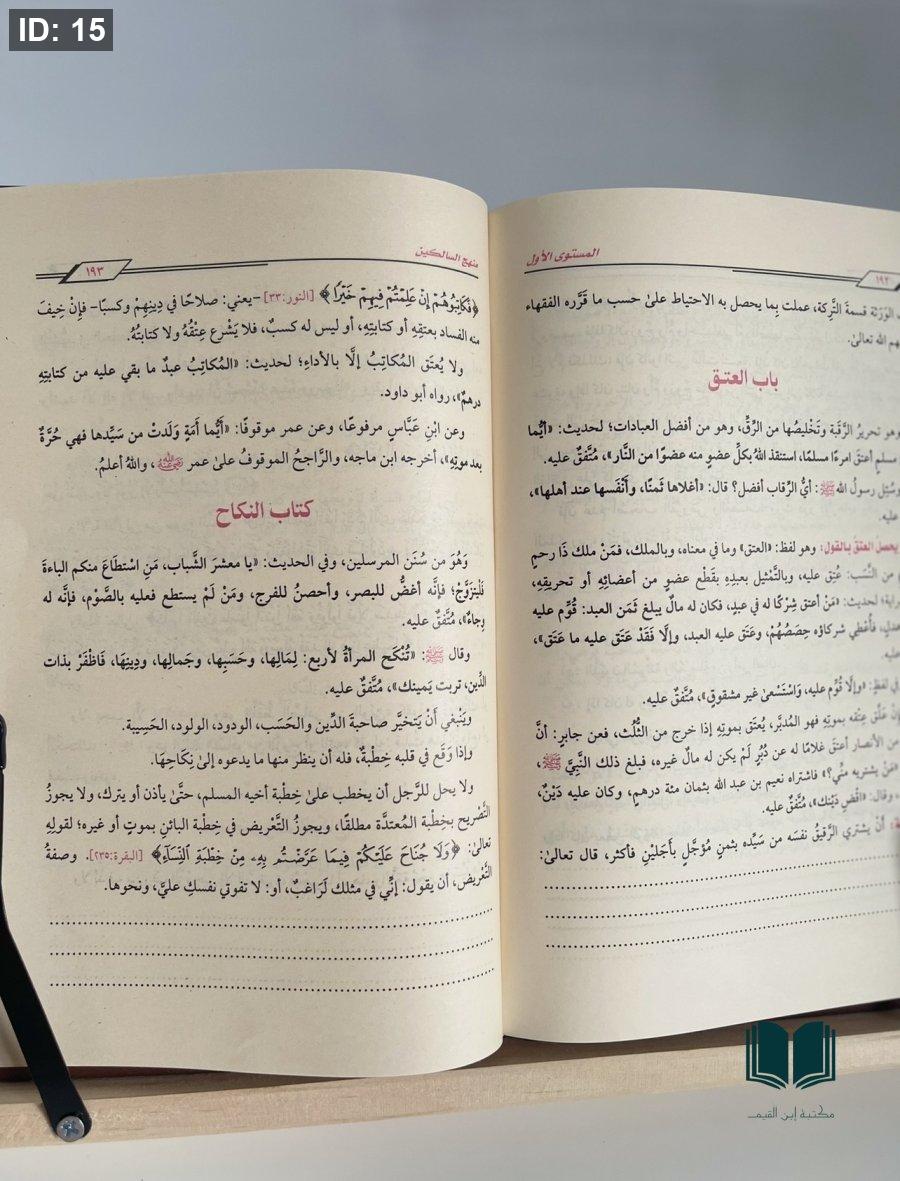 ID: 15
المستوى الأول
الورثة قسمةَ التَّرِكة، عملت بِما يحصل به الاحتياط علىٰ حسب ما قَرَّره الفقهاء
الله تعالىٰ.
باب العتق
وهو تحريرُ الرَّقَبة وتَخْلِيصُها من الرِّقِّ، وهو من أفضل العبادات؛ لحديث: «أيُّما
مسلمٍ أعتقَ امرءًا مسلمًا، استنقذ اللهُ بكلِّ عضوٍ منه عضوًا من النَّار»، مُتَّفقٌ عليه.
وسُئِل رسولُ الله ﷺ: أيُّ الرِّقاب أفضل؟ قال: «أغلاها ثَمنًا، وأَنْفَسها عند أهلها»،
عليه.
يحصل العتق بالقول: وهو لفظ: «العتق» وما في معناه، وبالملك، فمَنْ ملك ذَا رحمٍ
من النَّسَب: عُتِق عليه، وبالتَّمْثيل بعبدِهِ بقَطْع عضوٍ من أعضائِهِ أو تحريقِهِ،
لحديث: «مَنْ أعتق شِرْكًا له في عبدٍ، فكان له مالٌ يبلغ ثَمَن العبد: قُوِّم عليه
عدلٍ، فأُعْطِي شركاؤه حِصَصُهُمْ، وعَتَق عليه العبد، وإلَّا فَقَدْ عَتَق عليه ما عَتَق»،
عليه.
في لفظٍ: «وإلَّا قُوِّم عليه، وَاسْتَسْعىٰ غير مشقوقٍ»، مُتَّفقٌ عليه.
عَلَّق عِتْقه بموتِهِ فهو المُدبَّر، يُعتَق بموتِهِ إذا خرج من الثُّلُث، فعن جابرٍ: أنَّ
من الأنصار أعتقَ غلامًا له عن دُبُرٍ لَمْ يكن له مالٌ غيره، فبلغ ذلك النَّبِيَّ ﷺ،
«مَنْ يشتريه منِّي؟» فاشتراه نعيم بن عبد الله بثمان مئة درهمٍ، وكان عليه دَيْنٌ،
وقال: «اقْضِ دَيْنك»، مُتَّفقٌ عليه.
أنْ يشتري الرَّقيقُ نفسَه من سَيِّده بثمنٍ مُؤجَّلٍ بأجَلَيْنِ فأكثر، قال تعالىٰ:
منهج السالكين
١٩٣
﴿فَكَاتِبُوهُمْ إِنْ عَلِمْتُمْ فِيهِمْ خَيْرًا﴾ [النور:٣٣] -يعني: صلاحًا في دِينِهِمْ وكسبًا- فإنْ خِيفَ
منه الفساد بعتقِهِ أو كتابتِهِ، أو ليس له كسبٌ، فلا يَشْرع عِتْقُهُ ولا كتابتُهُ.
ولا يُعتَق المُكاتِبُ إلَّا بالأداءِ؛ لحديث: «المُكاتِبُ عبدٌ ما بقي عليه من كتابتِهِ
درهمٌ»، رواه أبو داود.
وعن ابْنِ عَبَّاسٍ مرفوعًا، وعن عمر موقوفًا: «أيُّما أَمَةٍ وَلَدتْ من سَيِّدها فهي حُرَّةٌ
بعد موتِهِ»، أخرجه ابن ماجه، والرَّاجحُ الموقوفُ علىٰ عمر رضي الله عنه، واللهُ أعلمُ.
كتاب النكاح
وَهُوَ من سُنَن المرسلين، وفي الحديث: «يا معشرَ الشَّباب، مَنِ اسْتطاعَ منكم الباءةَ
فَلْيَتزوَّجْ؛ فإنَّه أغضُّ للبصر، وأحصنُ للفرج، ومَنْ لَمْ يستطع فعليه بالصَّوْم، فإنَّه له
وِجاءٌ»، مُتَّفقٌ عليه.
وقال ﷺ: «تُنْكَح المرأةُ لأربع: لِمَالِها، وحَسَبِها، وجَمالِها، ودِينِهَا، فَاظْفَرْ بذات
الدِّين، تربت يَمينك»، مُتَّفقٌ عليه.
ويَنْبغي أنْ يَتخيَّر صاحبةَ الدِّين والحَسَب، الودود، الولود، الحَسِيبة.
وإذا وَقَع في قلبه خِطْبةٌ، فله أن ينظر منها ما يدعوه إلىٰ نِكَاحِهَا.
ولا يحل للرَّجل أن يخطب علىٰ خِطْبة أخيه المسلم، حتَّىٰ يأذن أو يترك، ولا يجوزُ
التَّصْريح بخِطْبة المُعتدَّة مطلقًا، ويجوزُ التَّعْريض في خِطْبة البائنِ بموتٍ أو غيره؛ لقولِهِ
تعالىٰ: ﴿وَلَا جُنَاحَ عَلَيْكُمْ فِيمَا عَرَّضْتُم بِهِۦ مِنْ خِطْبَةِ ٱلنِّسَآءِ﴾ [البقرة:٢٣٥]. وصفةُ
التَّعْريض، أن يقول: إنِّي في مثلك لَرَاغبٌ، أو: لا تفوتي نفسكِ عليَّ، ونحوها.
مكتبة إبن القيم